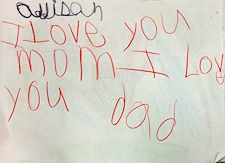 addisan
I Love you
mom I Lov
you dad